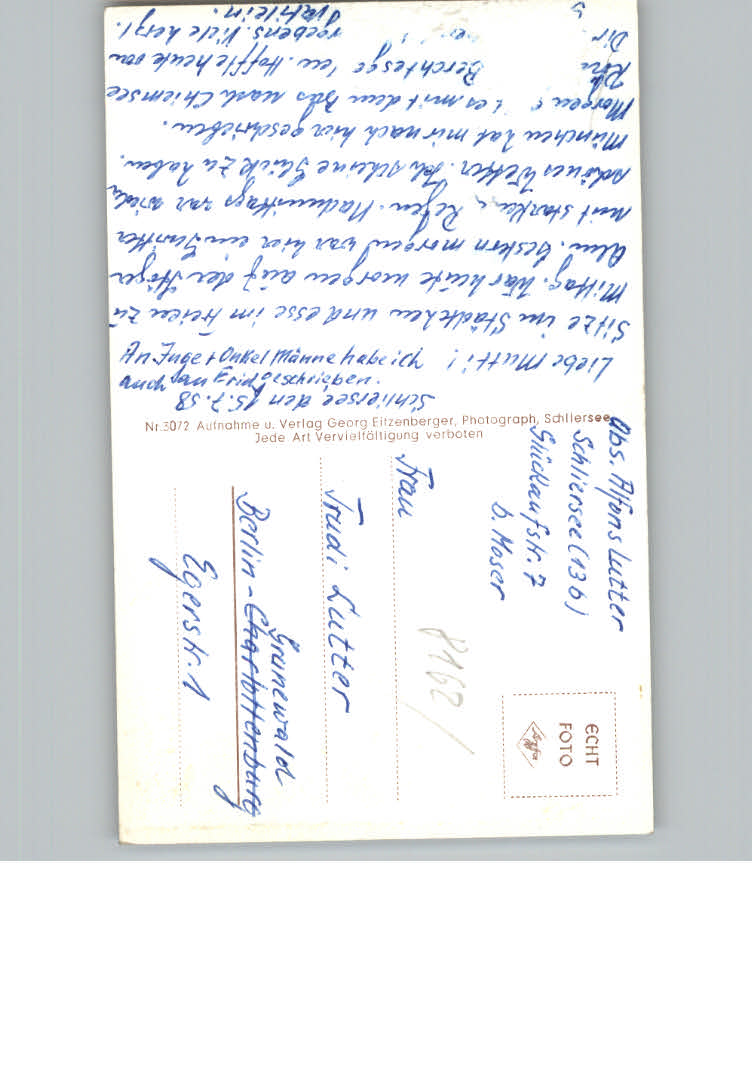 Schliersee den 15.7.58
Liebe Mutti! An Inge + Onkel Männe habe ich
auch an geschrieben.
Sitze im Städtchen und esse im Freien zu
Mittag. War heute morgen auf der
Alm. Gestern morgen war hier ein Gewitter
mit starkem Regen. Nachmittags war wieder
schönes Wetter. Ich scheine Glück zu haben.
München hat mir nach hier geschrieben.
Morgen es mit dem Bus nach Chiemsee
Berchtesge . Hoffe heute von
Dir . Viele herzl.
Nr.3072 Aufnahme u. Verlag Georg Eitzenberger, Photograph, Schliersee
Jede Art Vervielfältigung verboten
Abs. Alfons Lutter
Schliersee (13b)
Glückaufstr. 7
b. Moser
ECHT
FOTO
Agfa
8162/
Frau
Trudi Lutter
Grunewald
Berlin-Charlottenburg
Egerstr. 1